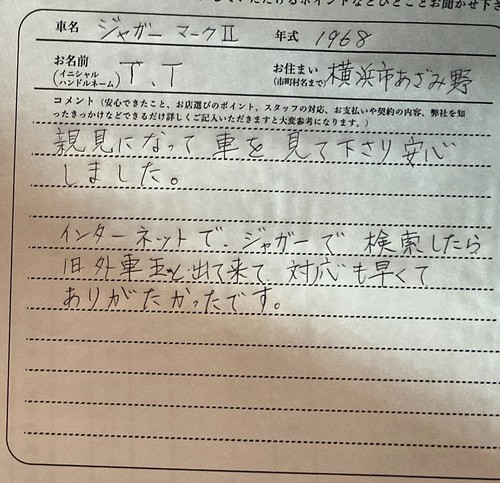 していただけるポイントなどひとことお聞かせ下さ
車名 ジャガー マークⅡ 年式 1968
お名前 (イニシャル ハンドルネーム) T.T お住まい (市町村名まで) 横浜市あざみ野
コメント（安心できたこと、お店選びのポイント、スタッフの対応、お支払いや契約の内容、弊社を知
ったきっかけなどできるだけ詳しくご記入いただきますと大変参考になります。）
親見になって車を見て下さり安心
しました。
インターネットで、ジャガーで検索したら
旧外車王と出て来て、対応も早くて
ありがたかったです。